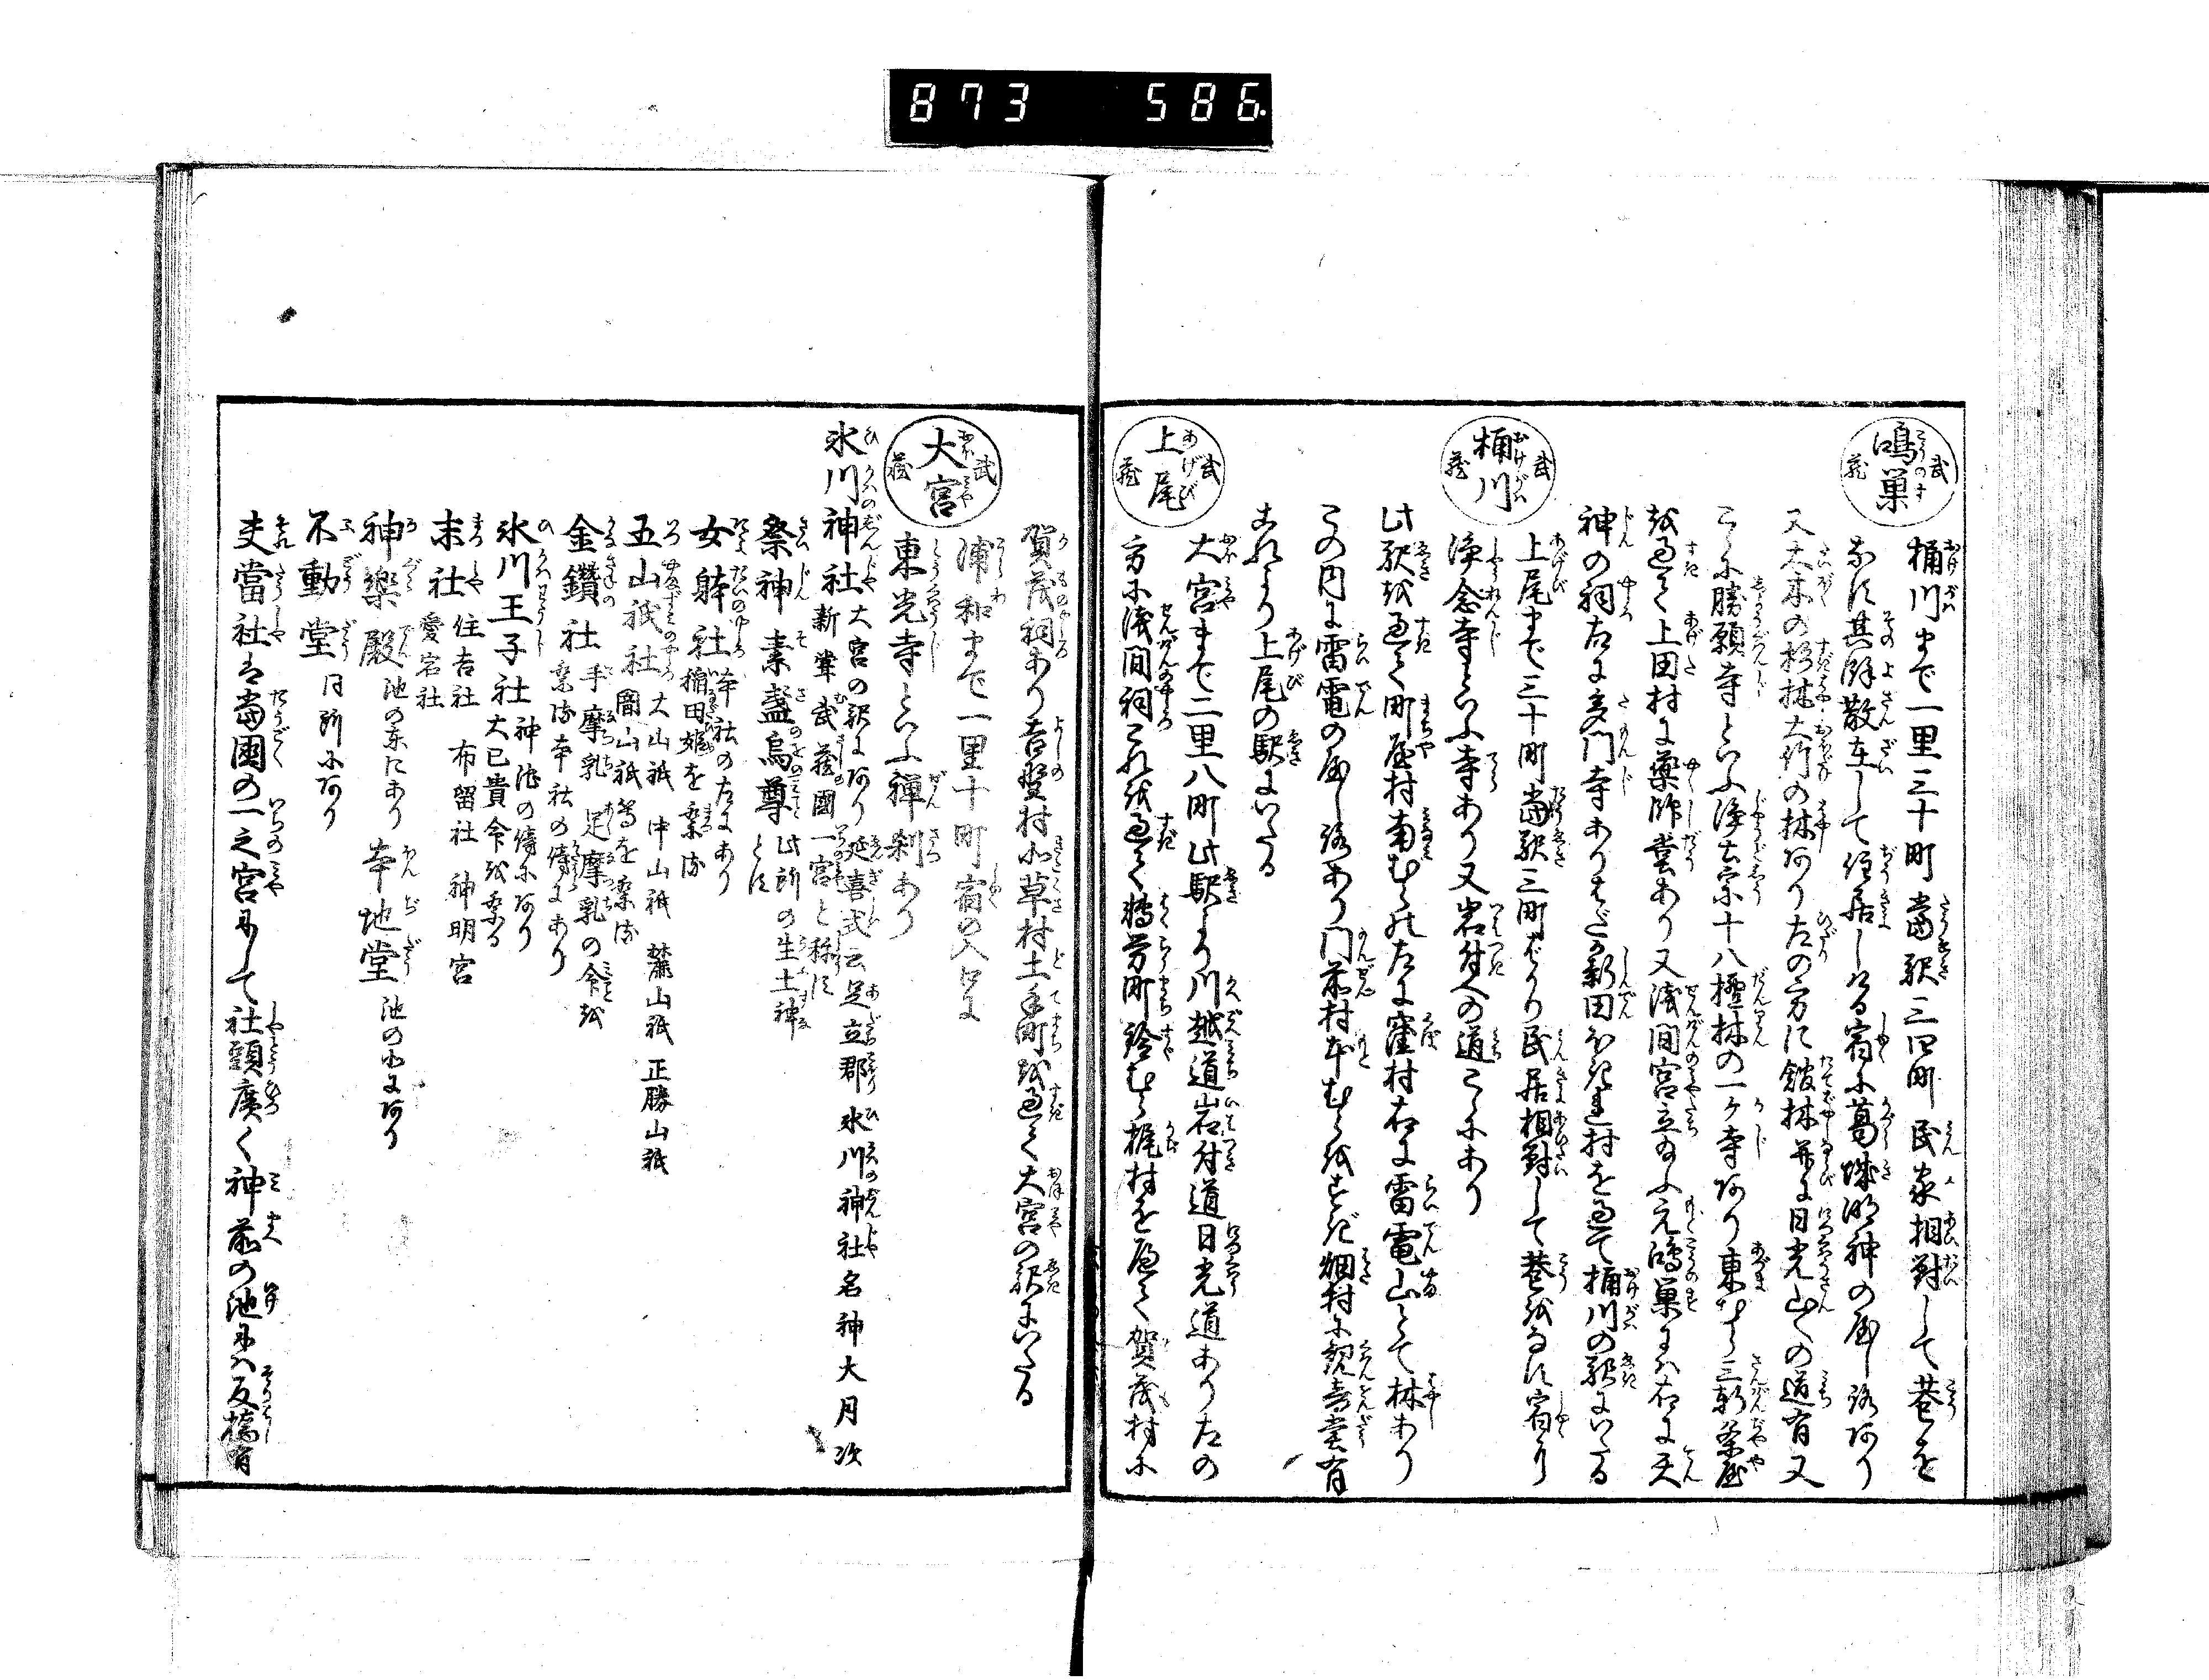 873 586.
鴻巣 武蔵
桶川まで一里三十町當駅三四町民家相對して巷を
なす其餘散在して住居しける宿に葛城明神の
又大木の杉林大竹の林あり左の方に舘林并に日光山への道有又
こゝに勝願寺といふ浄土宗十八檀林の一ケ寺あり東むら三軒茶屋
を過て上田村に薬師堂あり又浅間宮立給ふ元鴻巣には右に天
神の祠左に多門寺あり新田村を過て桶川の駅にいたる
桶川 武蔵
上尾まで三十町當駅三町ばかり民居相對して巷をなす宿
浄念寺といふ寺あり又岩付への道こゝにあり
此駅を過て町屋村南むら左に窪村右に雷電山とて林あり
この内に雷電の あり門前村 むらをすぎ畑村に観音堂有
これより上尾の駅にいたる
上尾 武蔵
大宮まで二里八町此駅より川越道岩付道日光道あり左の
方に浅間祠これを過て 町 むら梶村を歴て賀茂村に
賀茂祠あり吉野村加草村土手町を過て大宮の駅にいたる
大宮 武蔵
浦和まで一里十町宿の入口に
東光寺といふ禅刹あり
氷川神社 大宮の駅にあり延喜式云足立郡氷川神社名神大月次
新甞武蔵國一宮と称す
祭神素盞烏尊 此所の生土神とす
女躰社 本社の左にあり稲田姫を祭る
五山祇社 大山祇 中山祇 麓山祇 正勝山祇
闇山祇等を祭る
金鑚社 手摩乳 足摩乳の命を
祭る本社の傍にあり
氷川王子社 神池の傍にあり
大已貴命を祭る
末社 住吉社 布留社 神明宮
愛宕社
神樂殿 池の東にあり 本地堂 池の北にあり
不動堂 同所にあり
夫當社は當國の一之宮にして社頭廣く神前の池には反橋有